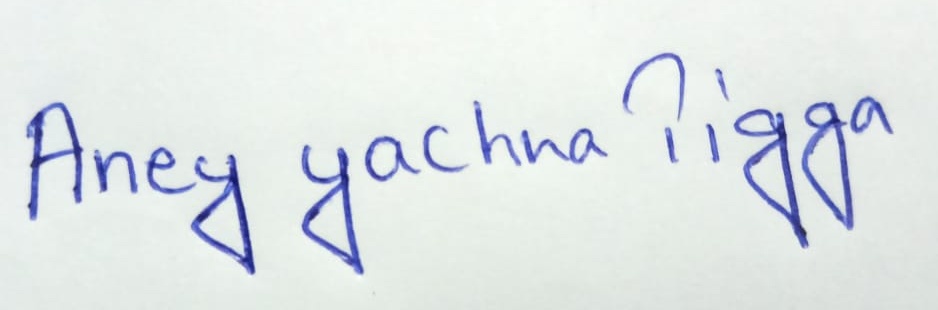 Aney yachna Tigga